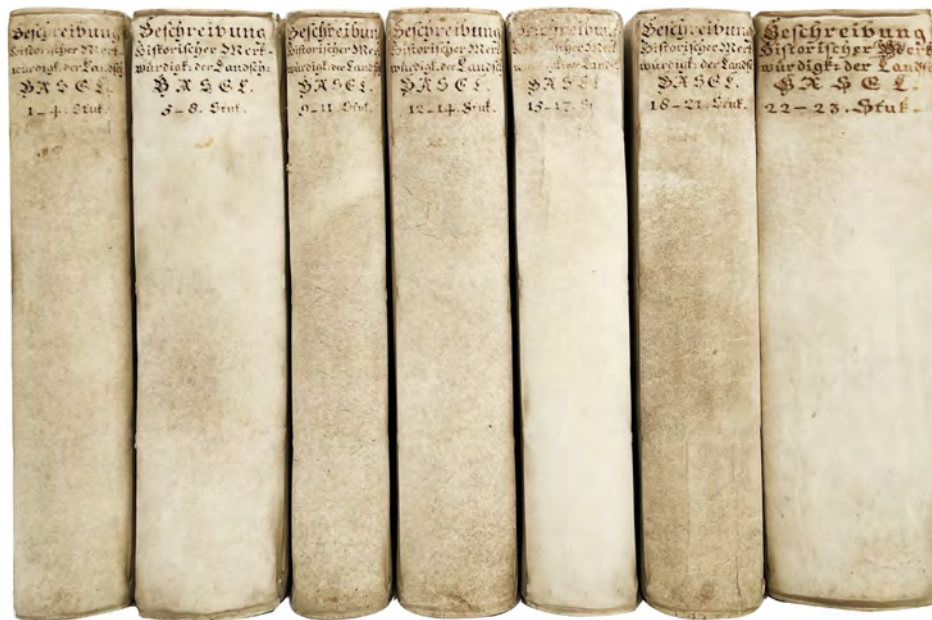 Beschreibung
Historischer Merk-
würdigk: der Landsch
BASEL.
1-4. Stuk.
Beschreibung
Historischer Merk-
würdigk: der Landsch:
BASEL.
5-8. Stuk.
Beschreibung
Historischer Merk
würdigk: der Landsch
BASEL.
9-11. Stuk.
Beschreibung
Historischer Merk
würdigk: der Landsch
BASEL.
12-14. Stuk.
Beschreibung
Merk
der Landsch
BASEL
15-17. St
Beschreibung
Historischer Merk
würdigk: der Landsch
BASEL.
18-21. Stuk.
Beschreibung
Historischer Merk
würdigk: der Landsch
BASEL.
22-23. Stuk.